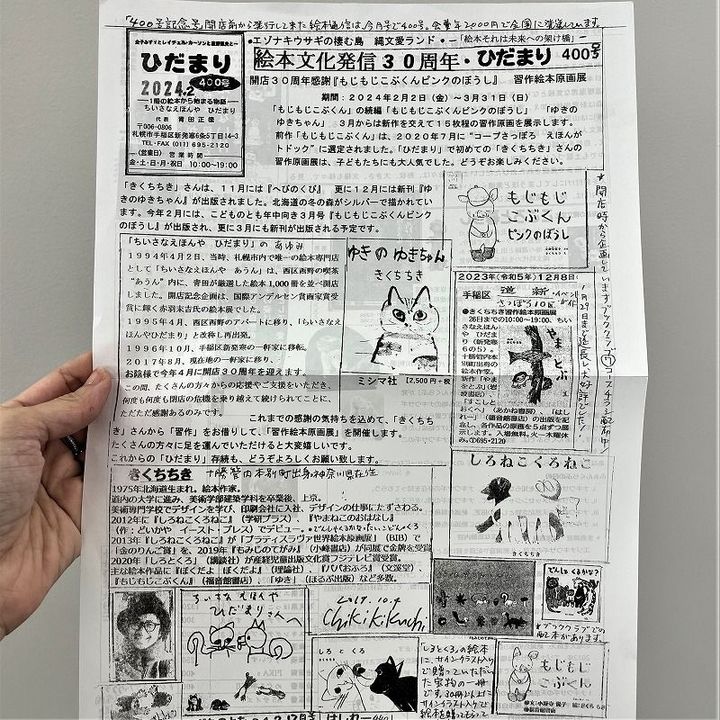 「400号記念号」開店前から発行してきた絵本通信は、今月号で400号。会費年2000円で全国に発送しています。
女子みすゞとレイチェル・カーソンと星野道夫と一
ひだまり
2024.2
400号
―1冊の絵本から始まる物語―
ちいさなえほんや ひだまり
代表 青田正徳
〒006-0806
札幌市手稲区新発寒6条5丁目14-3
TEL・FAX (011) 695-2120
―(営業日) 営業時間―
金・土・日・月・祝日 10:00〜19:00
●エゾナキウサギの棲む島 縄文愛ランド・―「絵本それは未来への架け橋」―
絵本文化発信30周年・ひだまり 400号
開店30周年感謝『もじもじこぶくんピンクのぼうし』 習作絵本原画展
期間:2024年2月2日(金)〜3月31日(日)
「もじもじこぶくん」の続編「もじもじこぶくんピンクのぼうし」「ゆきの
ゆきちゃん」 3月からは新作を交えて15枚程の習作原画を展示します。
前作「もじもじこぶくん」は、2020年7月に"コープさっぽろ えほんが
トドック"に選定されました。「ひだまり」で初めての「きくちちき」さんの
習作原画展は、子どもたちにも大人気でした。どうぞお楽しみください。
「きくちちき」さんは、11月には『へびのくび』 更に12月には新刊『ゆ
きのゆきちゃん』が出版されました。北海道の冬の森がシルバーで描かれてい
ます。今年2月には、こどものとも年中向き3月号『もじもじこぶくんピンク
のぼうし』が出版され、更に3月にも新刊が出版される予定です。
もじもじ
こぶくん
ピンクのぼうし
★開店時から企画しています。
「ちいさなえほんや ひだまり」のあゆみ
1994年4月2日、当時、札幌市内で唯一の絵本専門店
として「ちいさなえほんや あうん」は、西区西野の喫茶
"あうん"内に、青田が厳選した絵本1,000冊を並べ開店
しました。開店記念企画は、国際アンデルセン賞画家賞受
賞に輝く赤羽末吉氏の絵本展でした。
1995年4月、西区西野のアパートに移り、「ちいさなえ
ほんやひだまり」と改称し再出発。
1996年10月、手稲区新発寒の一軒家に移転。
2017年8月、現在地の一軒家に移り、
お陰様で今年4月に開店30周年を迎えます。
この間、たくさんの方々からの応援やご支援をいただき、
何度も何度も閉店の危機を乗り越えて続けられてことに、
ただただ感謝あるのみです。
これまでの感謝の気持ちを込めて、「きくちち
き」さんから「習作」をお借りして、「習作絵本原画展」を開催します。
たくさんの方々に足を運んでいただけると大変嬉しいです。
これからの「ひだまり」存続も、どうぞよろしくお願い致します。
ゆきの ゆきちゃん
きくちちき
ミシマ社 (2,500円+税)
2023年(令和5年)12月8日
手稲区 道新
さっぽろ10区
●きくちちき習作絵本原画展
26日までの10:00〜19:00、ちい
さなえほん
や ひだま
り(新発寒
6の5)。
十勝管内本
別町出身の
絵本作家。
新作「やま
をとぶ」
やまをとぶ
しろねこくろねこ
きくちちき
きくちちき 十勝管内本別町出身神奈川県在住
1975年北海道生まれ。絵本作家。
道内の大学に進み、美術学部建築学科を卒業後、上京。
美術専門学校でデザインを学び、印刷会社に入社、デザインの仕事にたずさわる。
2012年に『しろねこくろねこ』(学研プラス)、『やまねこのおはなし』
(作:どいかや イースト・プレス)でデビュー。
2013年『しろねこくろねこ』が「ブラティスラヴァ世界絵本原画展」(BIB)で
「金のりんご賞」を、2019年『もみじのてがみ』(小峰書店)が同展で金牌を受賞
2020年「しろとくろ」(講談社)が産経児童出版文化賞フジテレビ賞受賞。
主な絵本作品に『ぼくだよ ぼくだよ』(理論社)、『パパおふろ』(文溪堂)
『もじもじこぶくん』(福音館書店)、『ゆき』(ほるぷ出版)など多数。
ちいさなえほんや
ひだまりさんへ
2019.10.4
Chiki Kikuchi
しろとくろ
でんしゃくるかな?
★ブッククラブでの
配本があります。
もじもじ
こぶくん
「しろとくろ」の絵本
に、サインイラスト入り